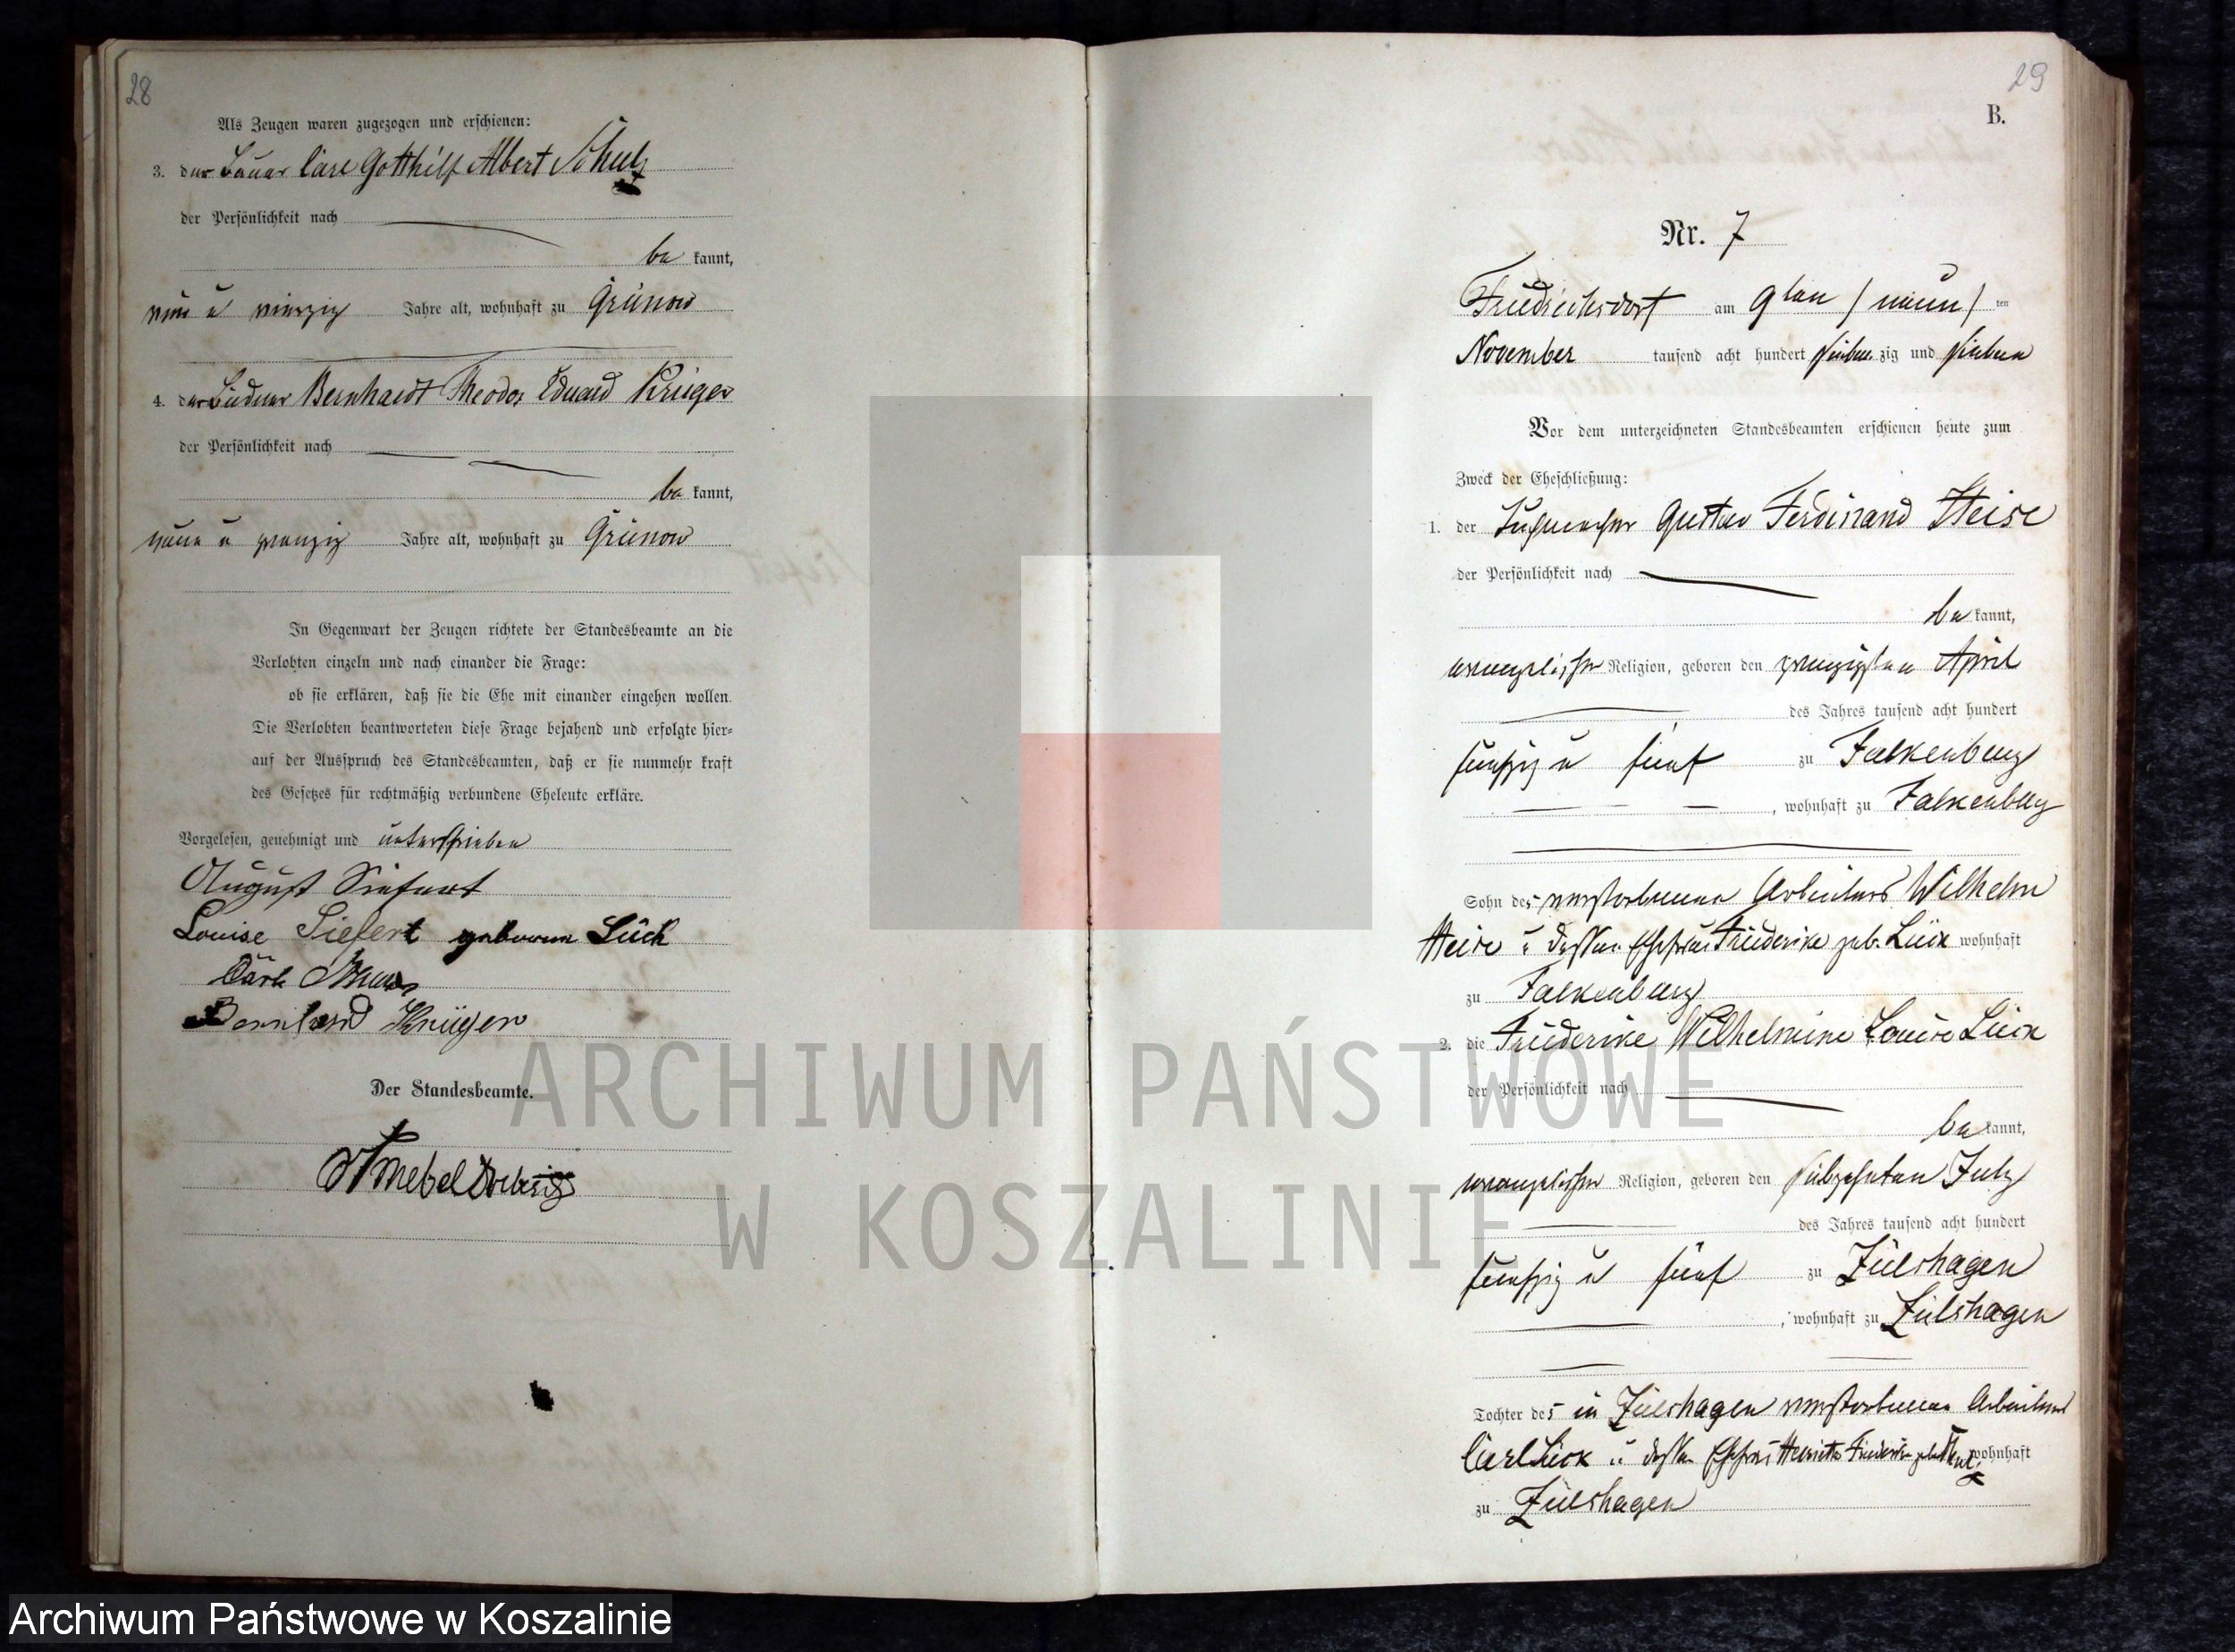 28
Als Zeugen waren zugezogen und erschienen:
3. der Bauer Carl Gotthilf Albert Schulz
der Persönlichkeit nach
be kannt,
nun u vierzig Jahre alt, wohnhaft zu Grünow
4. der Büdner Bernhardt Theodor Eduard Krüger
der Persönlichkeit nach
be kannt,
neun u zwanzig Jahre alt, wohnhaft zu Grünow
In Gegenwart der Zeugen richtete der Standesbeamte an die
Verlobten einzeln und nach einander die Frage:
ob sie erklären, daß sie die Ehe mit einander eingehen wollen.
Die Verlobten beantworteten diese Frage bejahend und erfolgte hier-
auf der Ausspruch des Standesbeamten, daß er sie nunmehr kraft
des Gesetzes für rechtmäßig verbundene Eheleute erkläre.
Vorgelesen, genehmigt und unterschrieben
August Siefert
Louise Siefert geborene Lück
Carl
Bernhard Krüger
Der Standesbeamte.
29
B.
Nr. 7
Friedrichsdorf am 9ten /neun/ ten
November tausend acht hundert sieben zig und sieben
Vor dem unterzeichneten Standesbeamten erschienen heute zum
Zweck der Eheschließung:
1. der Tuchmacher Gustav Ferdinand Heise
der Persönlichkeit nach
be kannt,
evangelischer Religion, geboren den zwanzigsten April
des Jahres tausend acht hundert
funfzig u fünf zu Falkenburg
, wohnhaft zu Falkenburg
Sohn des verstorbenen Arbeiters Wilhelm
Heise u dessen Ehefrau Friederike geb. Lück wohnhaft
zu Falkenburg
2. die Friederike Wilhelmine Louise Lück
der Persönlichkeit nach
be kannt,
evangelischer Religion, geboren den siebzehnten July
des Jahres tausend acht hundert
funfzig u fünf zu Zülshagen
, wohnhaft zu Zülshagen
Tochter des in Zülshagen verstorbenen Arbeiters
Carl Lück u dessen Ehefrau Henriette Friederike geb. wohnhaft
zu Zülshagen
ARCHIWUM PAŃSTWOWE
W KOSZALINIE
Archiwum Państwowe w Koszalinie